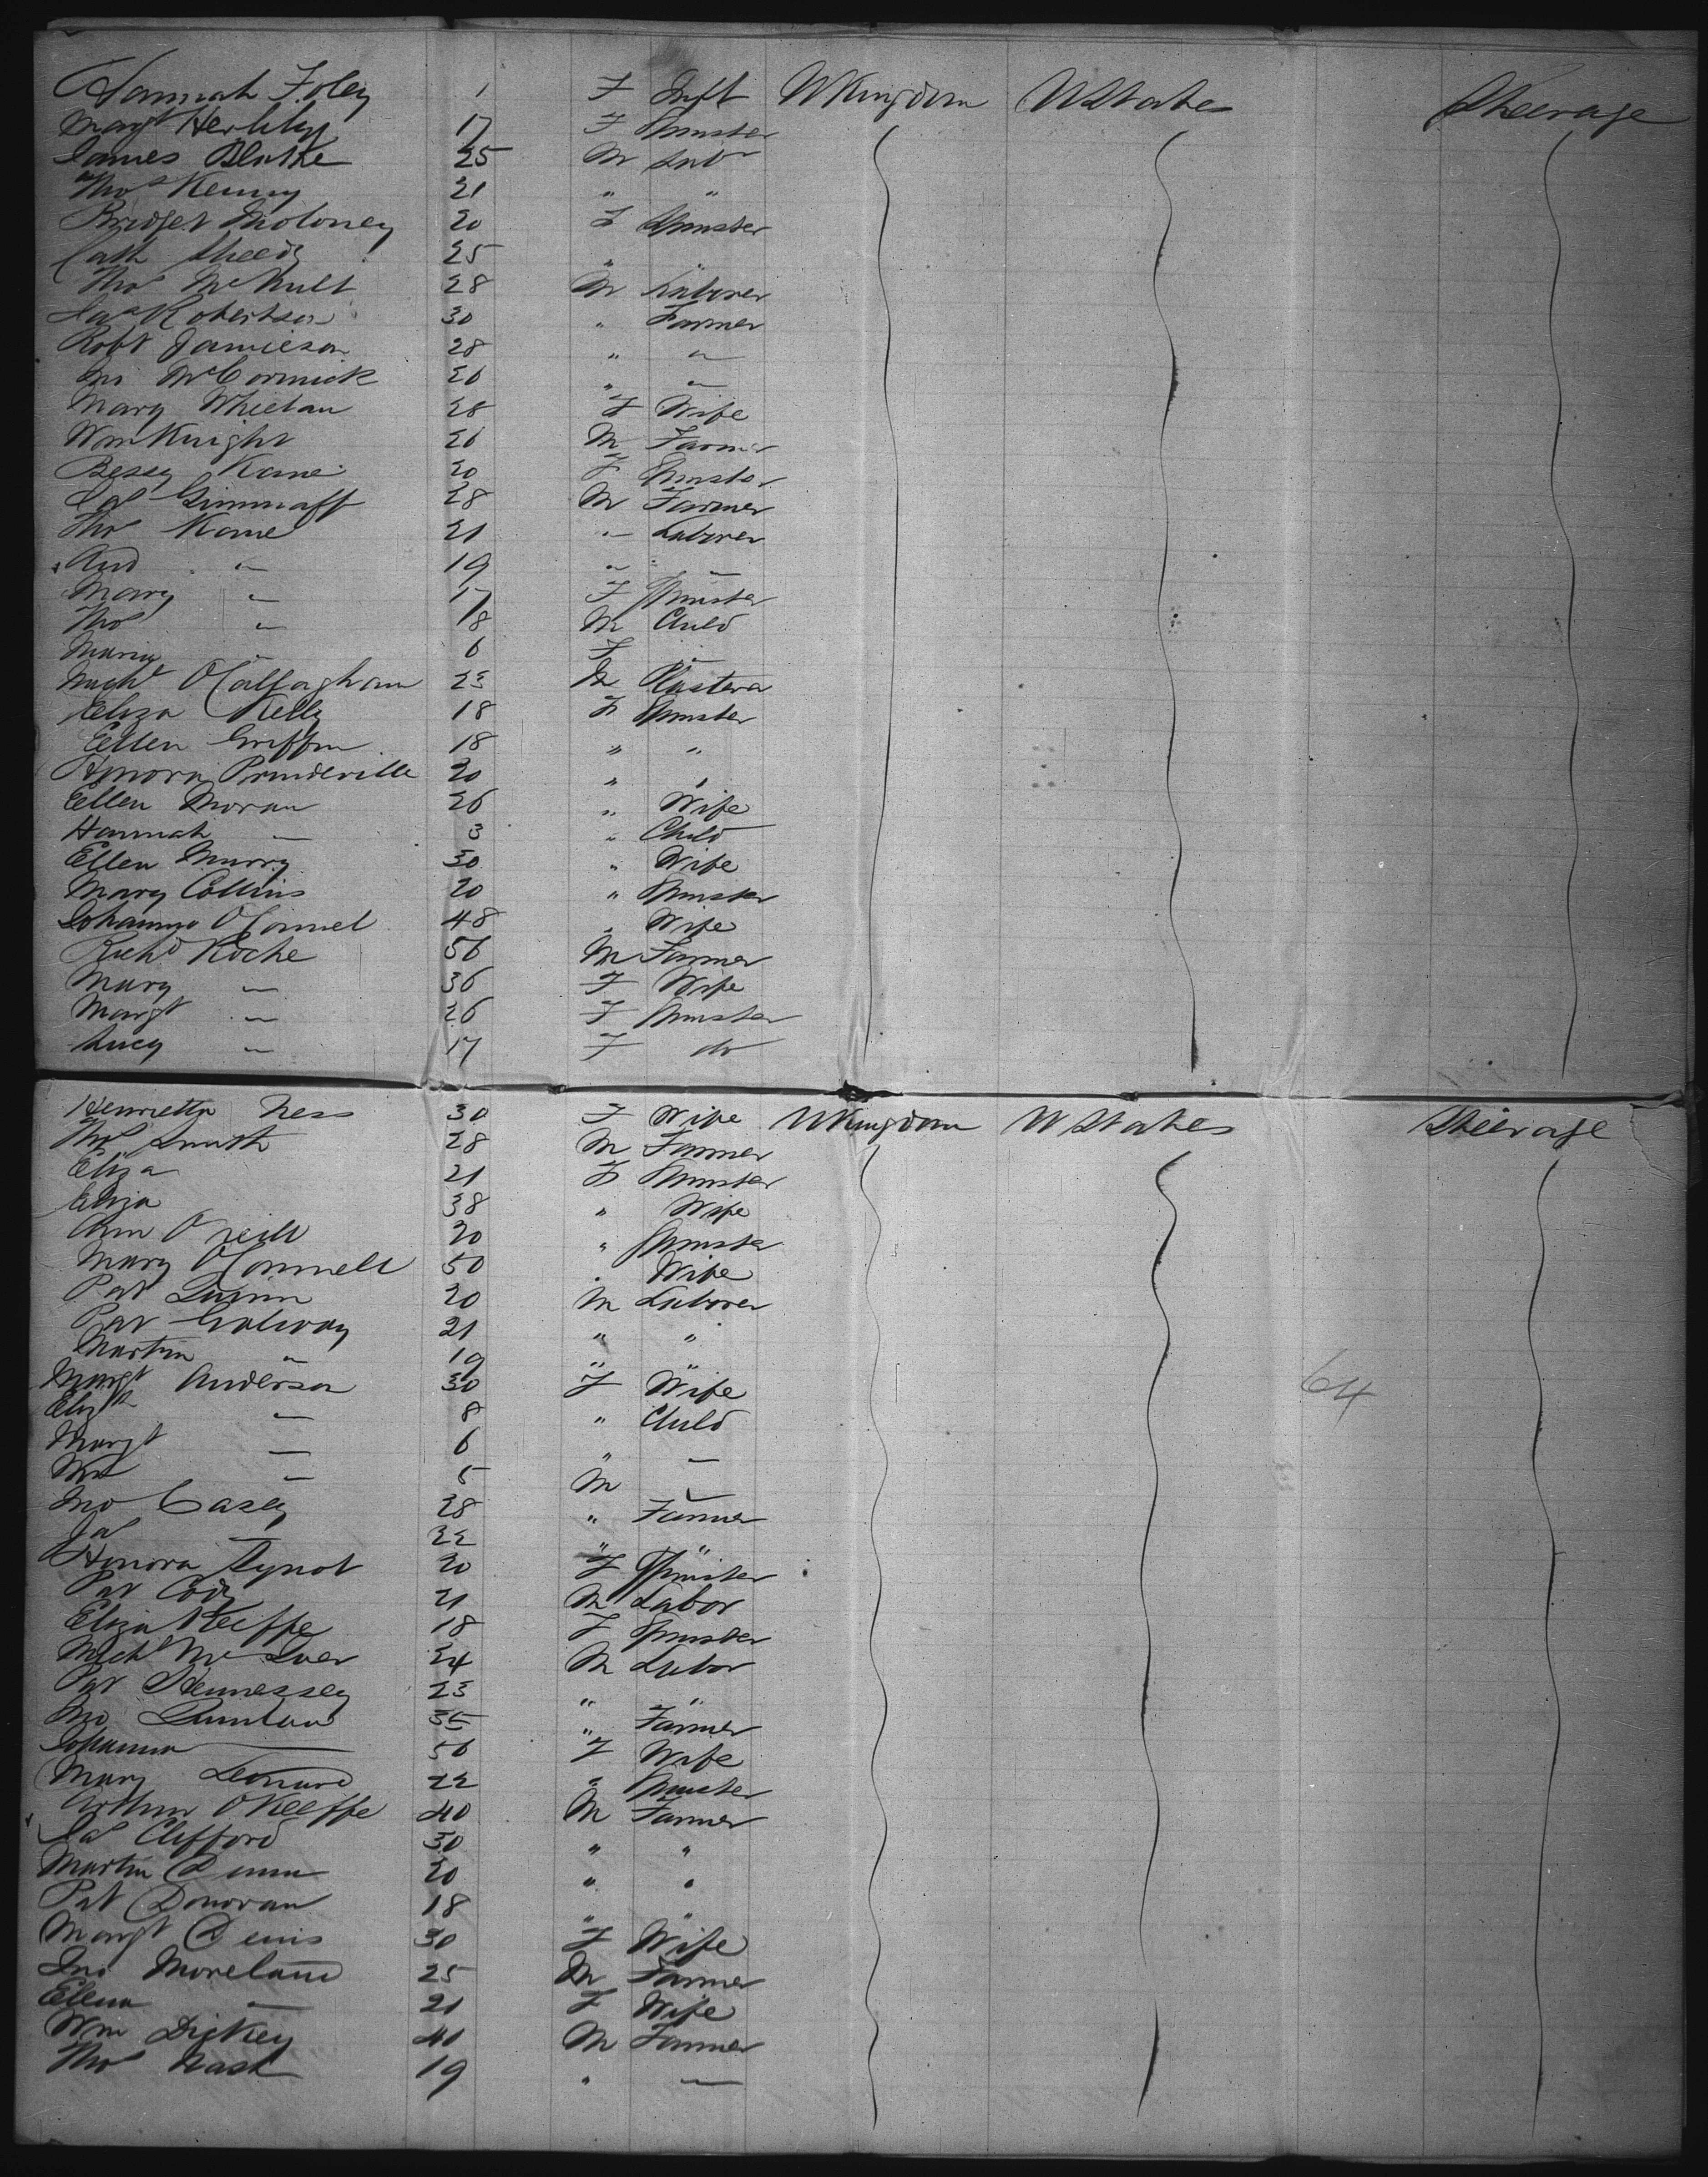 Hannah Foley 1 F Inft UKingdom UStates Steerage
Margt Herlihy 17 F Spinster
James Blake 25 M Lab
Thos Kenny 21 " "
Bridget Moloney 20 F Spinster
Cath Sheedy 25 " "
Thos McNult 28 M Laborer
Jas Robertson 30 " Farmer
Robt Jamieson 28 " "
Jno McCormick 26 " "
Mary Whelan 28 F Wife
Wm Knight 26 M Farmer
Besey Kane 20 F Spinster
Jas 28 M Farmer
Thos Kane 21 " Laborer
And " 19 " "
Mary " 17 F Spinster
Thos " 18 M Child
Maria " 6 F "
Michl OCallaghan 23 M Plasterer
Eliza Kelly 18 F Spinster
Ellen Griffin 18 " "
Honora Prinderville 20 " "
Ellen Moran 26 " Wife
Hannah " 3 " Child
Ellen Murry 30 " Wife
Mary Collins 20 " Spinster
Johanna OConnel 48 " Wife
Richd Roche 56 M Farmer
Mary " 36 F Wife
Margt " 26 F Spinster
Lucy " 17 F do
Henrietta Ness 30 F Wife UKingdom UStates Steerage
Thos Smith 28 M Farmer
Eliza 21 F Spinster
Eliza 38 " Wife
Ann ONeill 20 " Spinster
Mary OConnell 50 " Wife
Pat Quinn 20 M Laborer
Pat Galway 21 " "
Martin " 19 " "
Margt Anderson 30 F Wife 64
Elizth " 8 " Child
Margt " 6 " "
Wm " 5 M "
Jno Casey 28 " Farmer
Jas 22 " "
Honora Tynot 20 F Spinster
Pat Cody 21 M Labor
Eliza Keeffe 18 F Spinster
Michl Mc 24 M Labor
Pat Hennessey 23 " "
Jno Quinlan 35 " Farmer
Johanna — 56 F Wife
Mary Leonard 22 " Spinster
Arthur OKeeffe 40 M Farmer
Jas Clifford 30 " "
Martin Dunn 20 " "
Pat Donovan 18 " "
Margt Denis 30 F Wife
Jno Moreland 25 M Farmer
Ellen — 21 F Wife
Wm Dickey 40 M Farmer
Thos Nash 19 " "